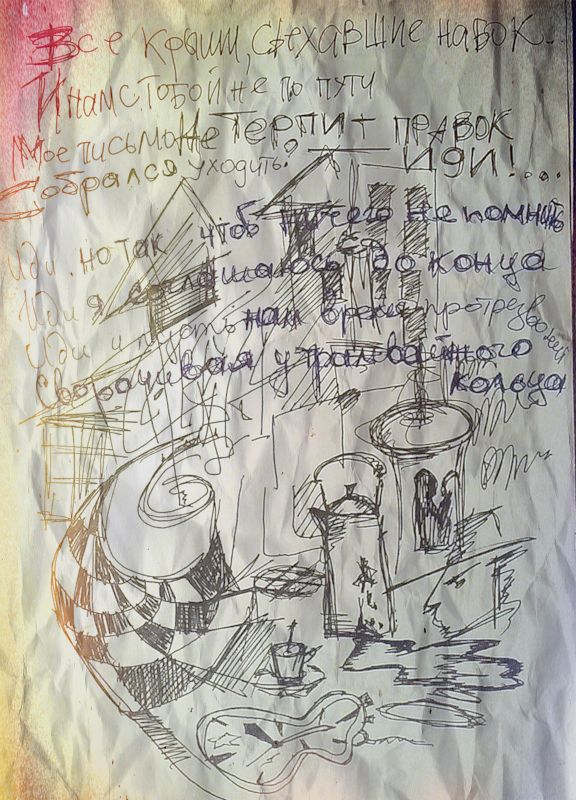 Все крыши, съехавшие набок.
И нам с тобой не по пути
Мое письмо не терпит правок
Собрался уходить? Иди!...
Иди. Но так чтоб ничего не помнить
Иди я соглашаюсь до конца
Иди и пусть нам время протрезвонит
Сворачивая у трамвайного
кольца